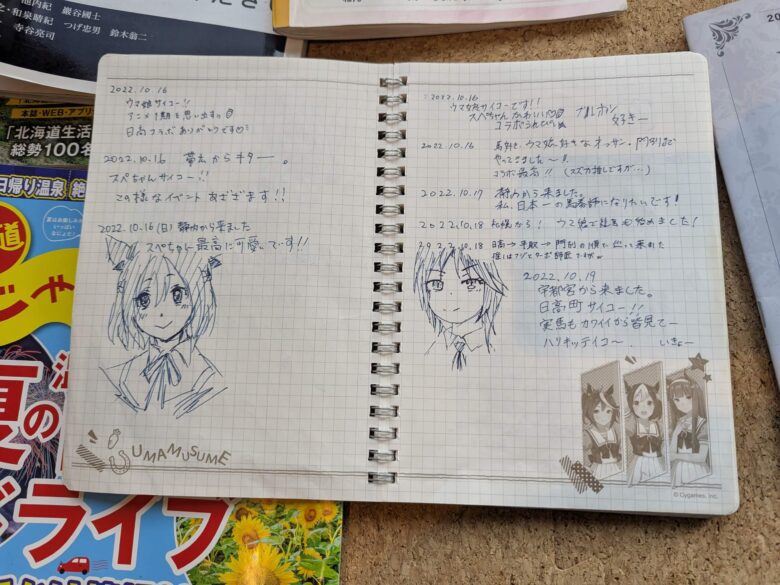 池内紀 巌谷國士
・和泉晴紀 つげ忠男 鈴木翁二
寺谷亮司
本誌・WEB・アプリ
「北海道生活
総勢100名
日帰り温泉 絶
道
じゃ
夏の
ドライブ
2022.10.16
ウマ娘サイコー!!
アニメ1期を思い出すわ
日高コラボありがとうです♡
2022.10.16 帯広からキター。
スペちゃんサイコー!!
この様なイベントあざざます!!
2022.10.16(日)静内から来ました
スペちゃん最高に可愛いです!!
UMAMUSUME
2022.10.16
ウマ娘サイコーです!!
スペちゃんかわいい♡
コラボうれしい
好きー
2022.10.16 馬好き、ウマ娘好きなオッサン、門別まで
やってきました〜!
コラボ最高!!(スズカ推しですが…)
2022.10.17 静内から来ました。
私、日本一の馬券師になりたいです!
2022.10.18 札幌から! ウマ娘で競馬も始めました!
2022.10.18 日高→平取→門別の順で巡って来れた
2022.10.19
宇都宮から来ました。
日高町サイコー!!
実馬もカワイイから皆見てー
ハリキッテイコ〜.
© Cygames, Inc.
20